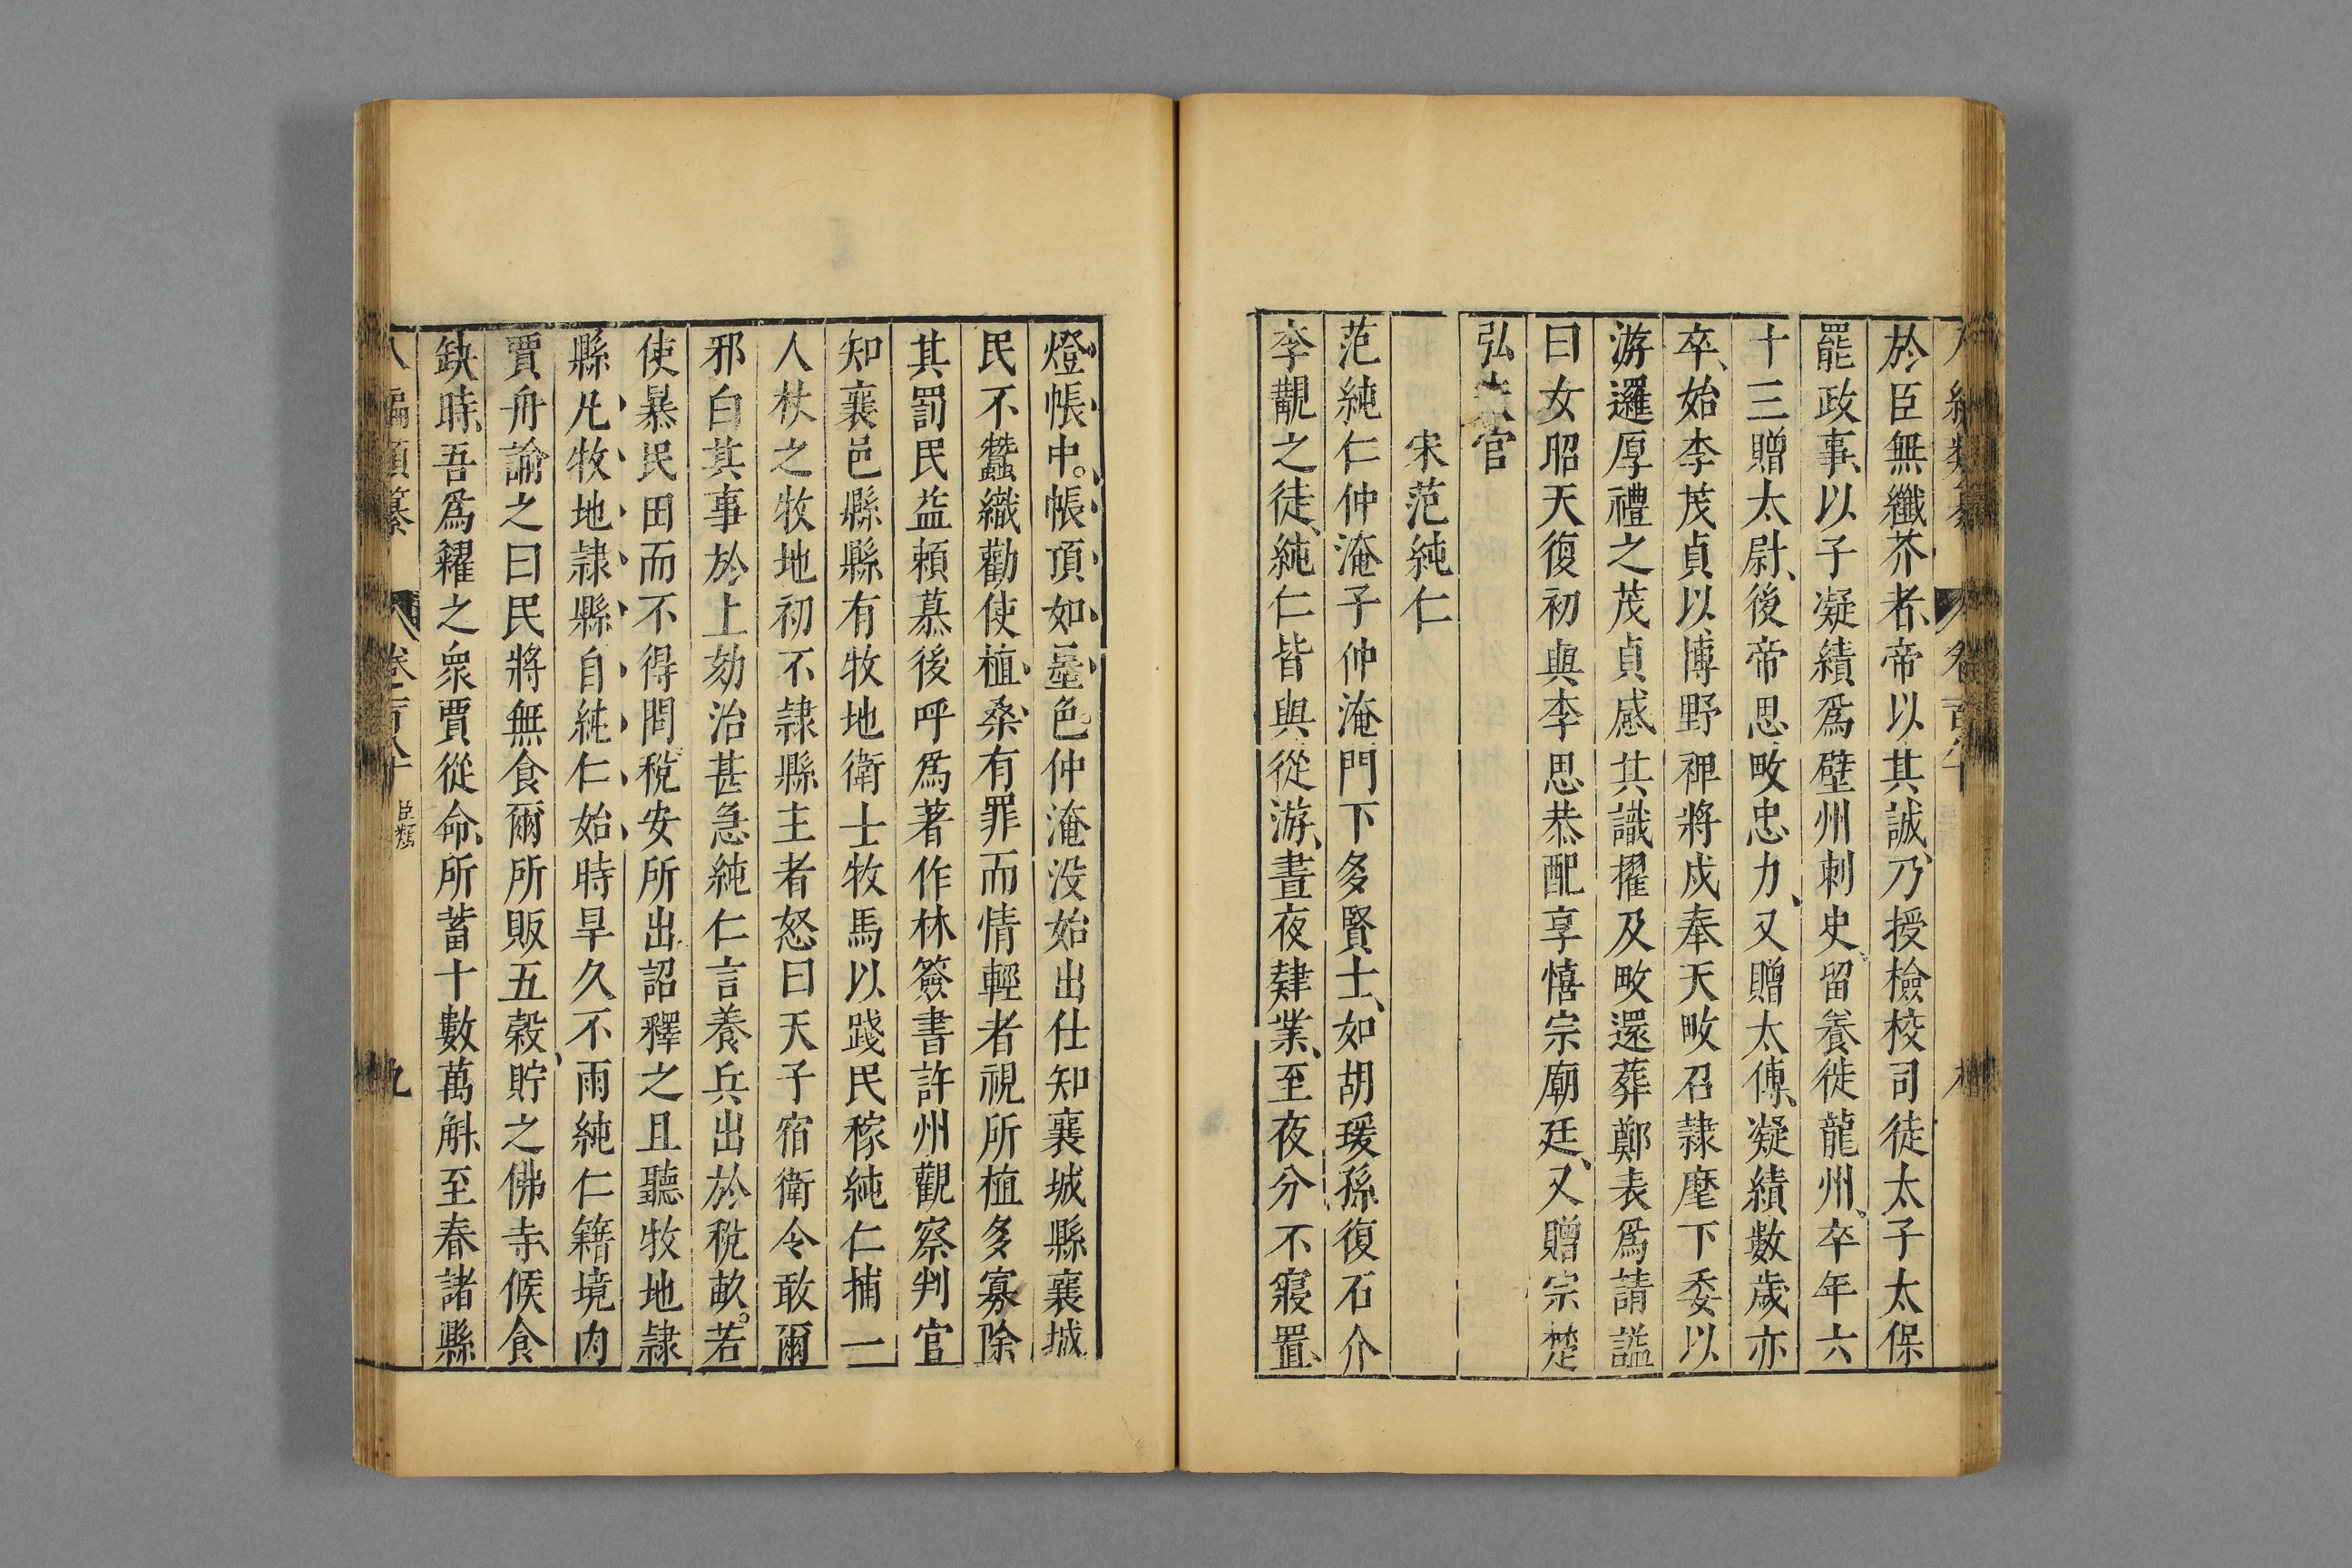 於臣無纖芥者、帝以其誠、乃授檢校司徒太子太保
罷政事、以子凝績爲壁州刺史、留養徙龍州、卒年六
十三贈太尉、後帝思畋忠力、又贈太傅、凝績數歲亦
卒、始李茂貞以博野裨將戍奉天畋召隷麾下委以
游邏厚禮之茂貞感其識擢及畋還葬鄭表爲請謚
曰文昭天復初與李思恭配享僖宗廟廷、又贈宗楚
弘官
宋范純仁
范純仁仲淹子仲淹門下多賢士、如胡瑗孫復石介
李覯之徒、純仁皆與從游、晝夜肄業、至夜分不寢置、
燈帳中。帳頂如墨色。仲淹没始出仕知襄城縣襄城
民不蠶織勸使植桑、有罪而情輕者視所植多寡除
其罰民益頼慕後呼爲著作林簽書許州觀察判官
知襄邑縣縣有牧地衛士牧馬以踐民稼純仁捕一
人杖之牧地初不隷縣主者怒曰天子宿衛令敢爾
邪白其事於上劾治甚急純仁言養兵出於稅畝。若
使暴民田而不得問稅安所出詔釋之且聽牧地隷
縣凡牧地隷縣自純仁始、時旱久不雨純仁籍境内
賈舟諭之曰民將無食爾所販五穀、貯之佛寺、候食
缺時、吾爲糴之衆賈從命、所蓄十數萬斛、至春諸縣
編類纂 卷一百八十 臣類 九